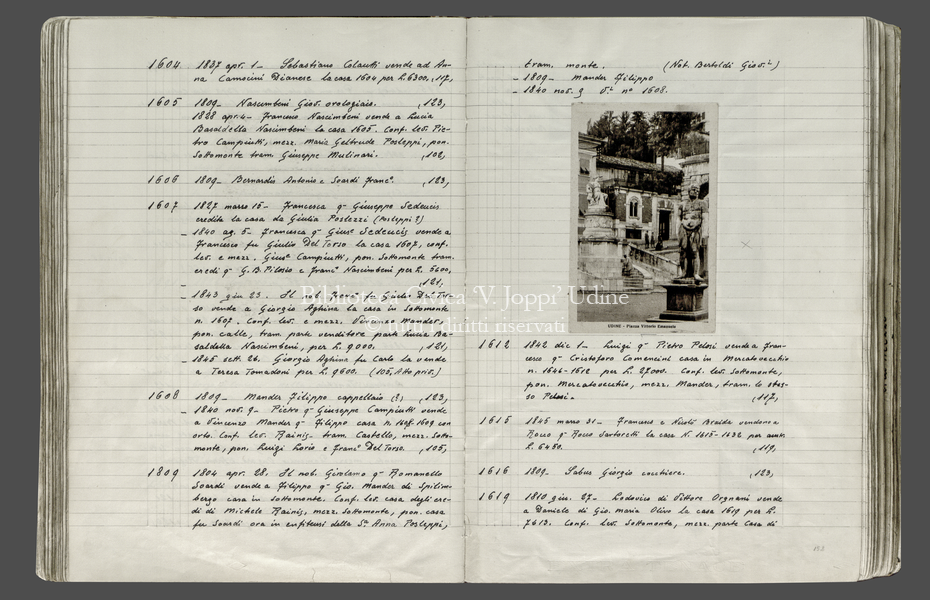 1604 1837 apr. 1 - Sebastiano Colautti vende ad An-
na Camocini Dianese la casa 1604 per L. 6300. (117)
1605 1809 - Nascimbeni Giov. orologiaio. (123)
1828 apr. 4 - Francesco Nascimbeni vende a Lucia
Basaldella Nascimbeni la casa 1605. Conf. lev. Pie-
tro Campiutti, mezz. Maria Geltrude Posteppi, pon.
Sottomonte tram. Giuseppe Mulinari. (102)
1606 1809 - Bernardis Antonio e Soardi Franc°. (123)
1607 1827 marzo 15 - Francesca q- Giuseppe Sedeucis
eredita la casa da Giulia Postezzi (Posteppi ?)
- 1840 ag. 5 - Francesca q- Gius° Sedeucis vende a
Francesco fu Giulio Del Torso la casa 1607, conf.
lev. e mezz. Gius° Campiutti, pon. Sottomonte tram.
eredi q- G.B. Pilosio e Franc° Nascimbeni per L. 5600,
(121)
- 1843 giu 23. Il nob. Franc° fu Giulio Del Tor-
so vende a Giorgio Aghina la casa in Sottomonte
n. 1607. Conf. lev. e mezz. Vincenzo Mander,
pon. calle, tram. parte venditore parte Lucia Ba-
saldella Nascimbeni, per L. 9000. (121)
- 1845 sett. 26. Giorgio Aghina fu Carlo la vende
a Teresa Tomadoni per L. 9600. (105, Atto priv.)
1608 1809 - Mander Filippo cappellaio (?) (123)
- 1840 nov. 9 - Pietro q- Giuseppe Campiutti vende
a Vincenzo Mander q- Filippo casa n. 1608-1609 con
orto. Conf. lev. Rainis, tram. Castello, mezz. Sotto-
monte, pon. Luigi Lorio e Franc° Del Torso. (105)
1809 1804 apr. 28. Il nob. Girolamo q- Romanello
Soardi vende a Filippo q- Gio. Mander di Spilim-
bergo casa in Sottomonte. Conf. lev. casa degli ere-
di di Michele Rainis, mezz. Sottomonte, pon. casa
fu Soardi ora in enfiteusi della S.ª Anna Posteppi,
tram. monte. (Not. Bertoldi Giov.)
- 1809 - Mander Filippo
- 1840 nov. 9 n° 1608.
UDINE - Piazza Vittorio Emanuele
1612 1842 dic 1 - Luigi q- Pietro Pelosi vende a Fran-
cesco q- Cristoforo Comencini casa in Mercatovecchio
n. 1646-1612 per L. 27000. Conf. lev. Sottomonte,
pon. Mercatovecchio, mezz. Mander, tram. lo stes-
so Pelosi. (117)
1615 1845 marzo 31 - Francesco e Nicolò Braida vendono a
Rocco q- Rocco Sartoretti la casa N. 1615-1632 per austr.
L. 6450. (119)
1616 1809 - Sabus Giorgio cocchiere. (123)
1619 1810 giu. 27 - Lodovico di Vettore Orgnani vende
a Daniele di Gio. Maria Olivo la casa 1619 per L.
7613. Conf. lev. Sottomonte, mezz. parte Casa di
Biblioteca Civica 'V. Joppi' Udine
© tutti i diritti riservati